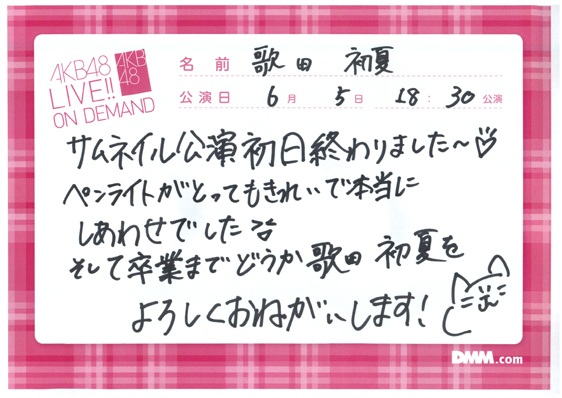 AKB48
LIVE!!
ON DEMAND
AKB
48
名前 歌田 初夏
公演日 6月 5日 18:30公演
サムネイル公演初日終わりました〜♡
ペンライトがとってもきれいで本当に
しあわせでした
そして卒業までどうか歌田 初夏を
よろしくおねがいします!
DMM.com